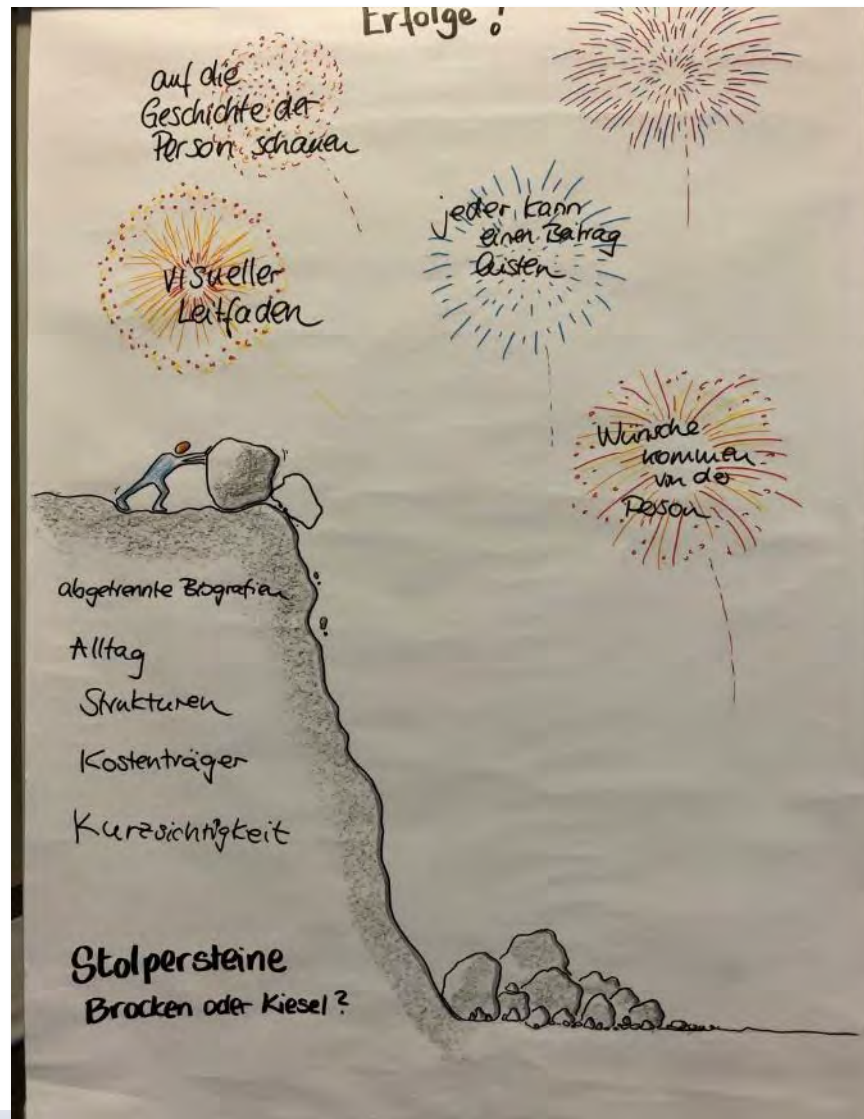 Erfolge!
auf die
Geschichte der
Person schauen
jeder kann
einen Beitrag
leisten
visueller
Leitfaden
Wünsche
kommen
von der
Person
abgetrennte Biografien
Alltag
Strukturen
Kostenträger
Kurzsichtigkeit
Stolpersteine
Brocken oder Kiesel?